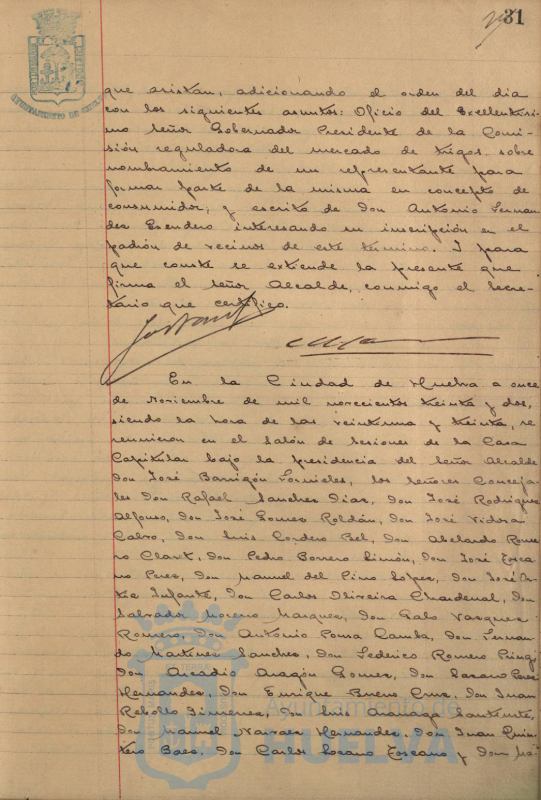 31
AYUNTAMIENTO DE HUELVA
que existan, adicionando el orden del dia
con los siguientes asuntos: Oficio del Excellentisi-
mo señor Gobernador Presidente de la Comi-
sión reguladora del mercado de trigos sobre
nombramiento de un representante para
formar parte de la misma en concepto de
consumidor; y escrito de Don Antonio Fernan
dez Escudero interesando su inscripción en el
padrón de vecinos de este término. I para
que conste se extiende la presente que
firma el señor Alcalde, conmigo el Secre-
tario que certifico.
En la Ciudad de Huelva a once
de Noviembre de mil novecientos treinta y dos,
siendo la hora de las veintiuna y treinta, se
reunieron en el salón de sesiones de la Casa
Capitular bajo la presidencia del señor Alcalde
don José Barrigón Fornieles, los señores Conceja-
les Don Rafael Sanchez Diaz, don José Rodriguez
Alfonso, don José Gomez Roldán, don José Vidosa
Calvo, don Luis Cordero Bel, don Abelardo Rome-
ro Claret, don Pedro Borrero Limón, don José Tosca
no Perez, don Manuel del Pino Lopez, don José
Infante, don Carlos Oliveira Chardenal, don
Salvador Moreno Marquez, don Galo Vazquez
Romero, don Antonio Poma Camba, don Fernan-
do Martinez Sanchez, don Federico Romero
don Arcadio Aragón Gomez, don Lazaro Perez
Hernandez, don Enrique Bueno Cruz, don Juan
Rebollo Jimenez, don Luis
don Manuel Narvaez Hernandez, don Juan Quin-
tero Baez, don Carlos Lozano Toscano y don Ma-
Ayuntamiento de
HUELVA